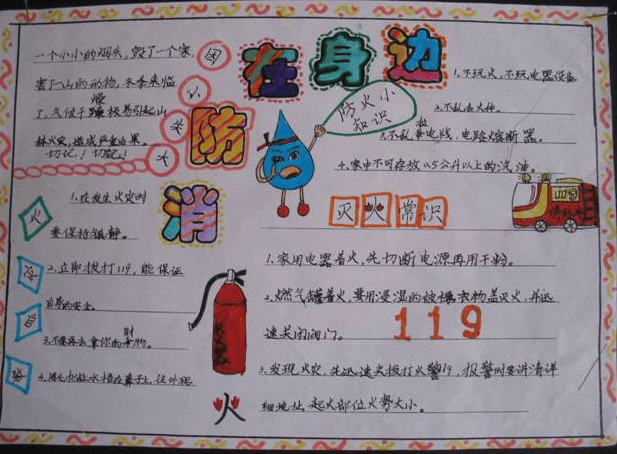 消防在身边
一个小小的烟头,毁了一个家,
害了一山的动物,冬季来临
了,气候干燥极易引起山
林火灾,造成严重后果。
切记!切记!
防火小
知识
1.不玩火,不玩电器设备
2.不乱丢火种。
3.不乱私电线、电路熔断器。
4.家中不可存放0.5公升以上的汽油。
火
1.在发生火灾时
要保持镇静。
2.立即拨打119,能保证
自身的安全。
3.不要再去拿你的财物。
灭火常识
1.家用电器着火,先切断电源再用干粉。
2.燃气罐着火,要用浸湿的被褥衣物盖灭火,并迅
速关闭阀门。
119
3.发现火灾,先迅速火拨打火警119,报警时要讲清详
细地址,起火部位火势大小。
火